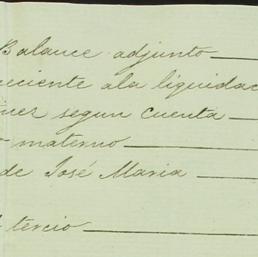 Balance adjunto
reciente ala liquidac
segun cuenta
materno
de José Maria
tercio